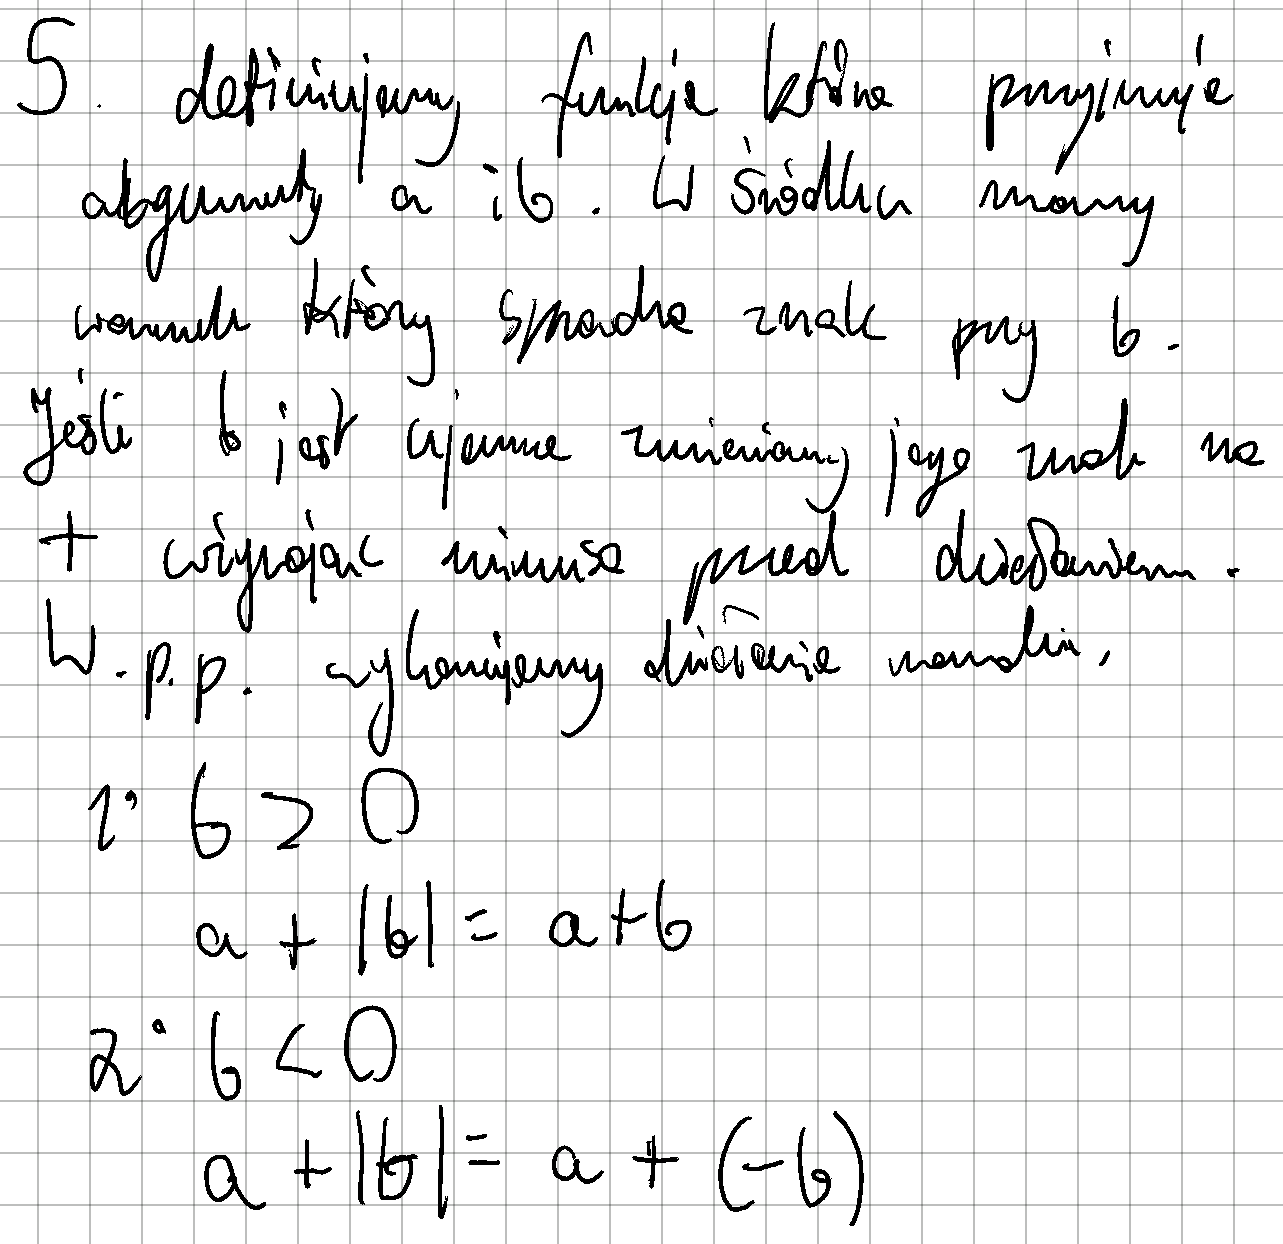 5. definiujemy funkcje która przyjmuje
argumenty a i b. W śródku mamy
warunek który sprawdza znak przy b.
Jeśli b jest ujemne zmieniamy jego znak na
+ używając minusa przed działaniem.
W.p.p. wykonujemy działanie normalnie.
1° b > 0
a + |b| = a + b
2° b < 0
a + |b| = a + (-b)